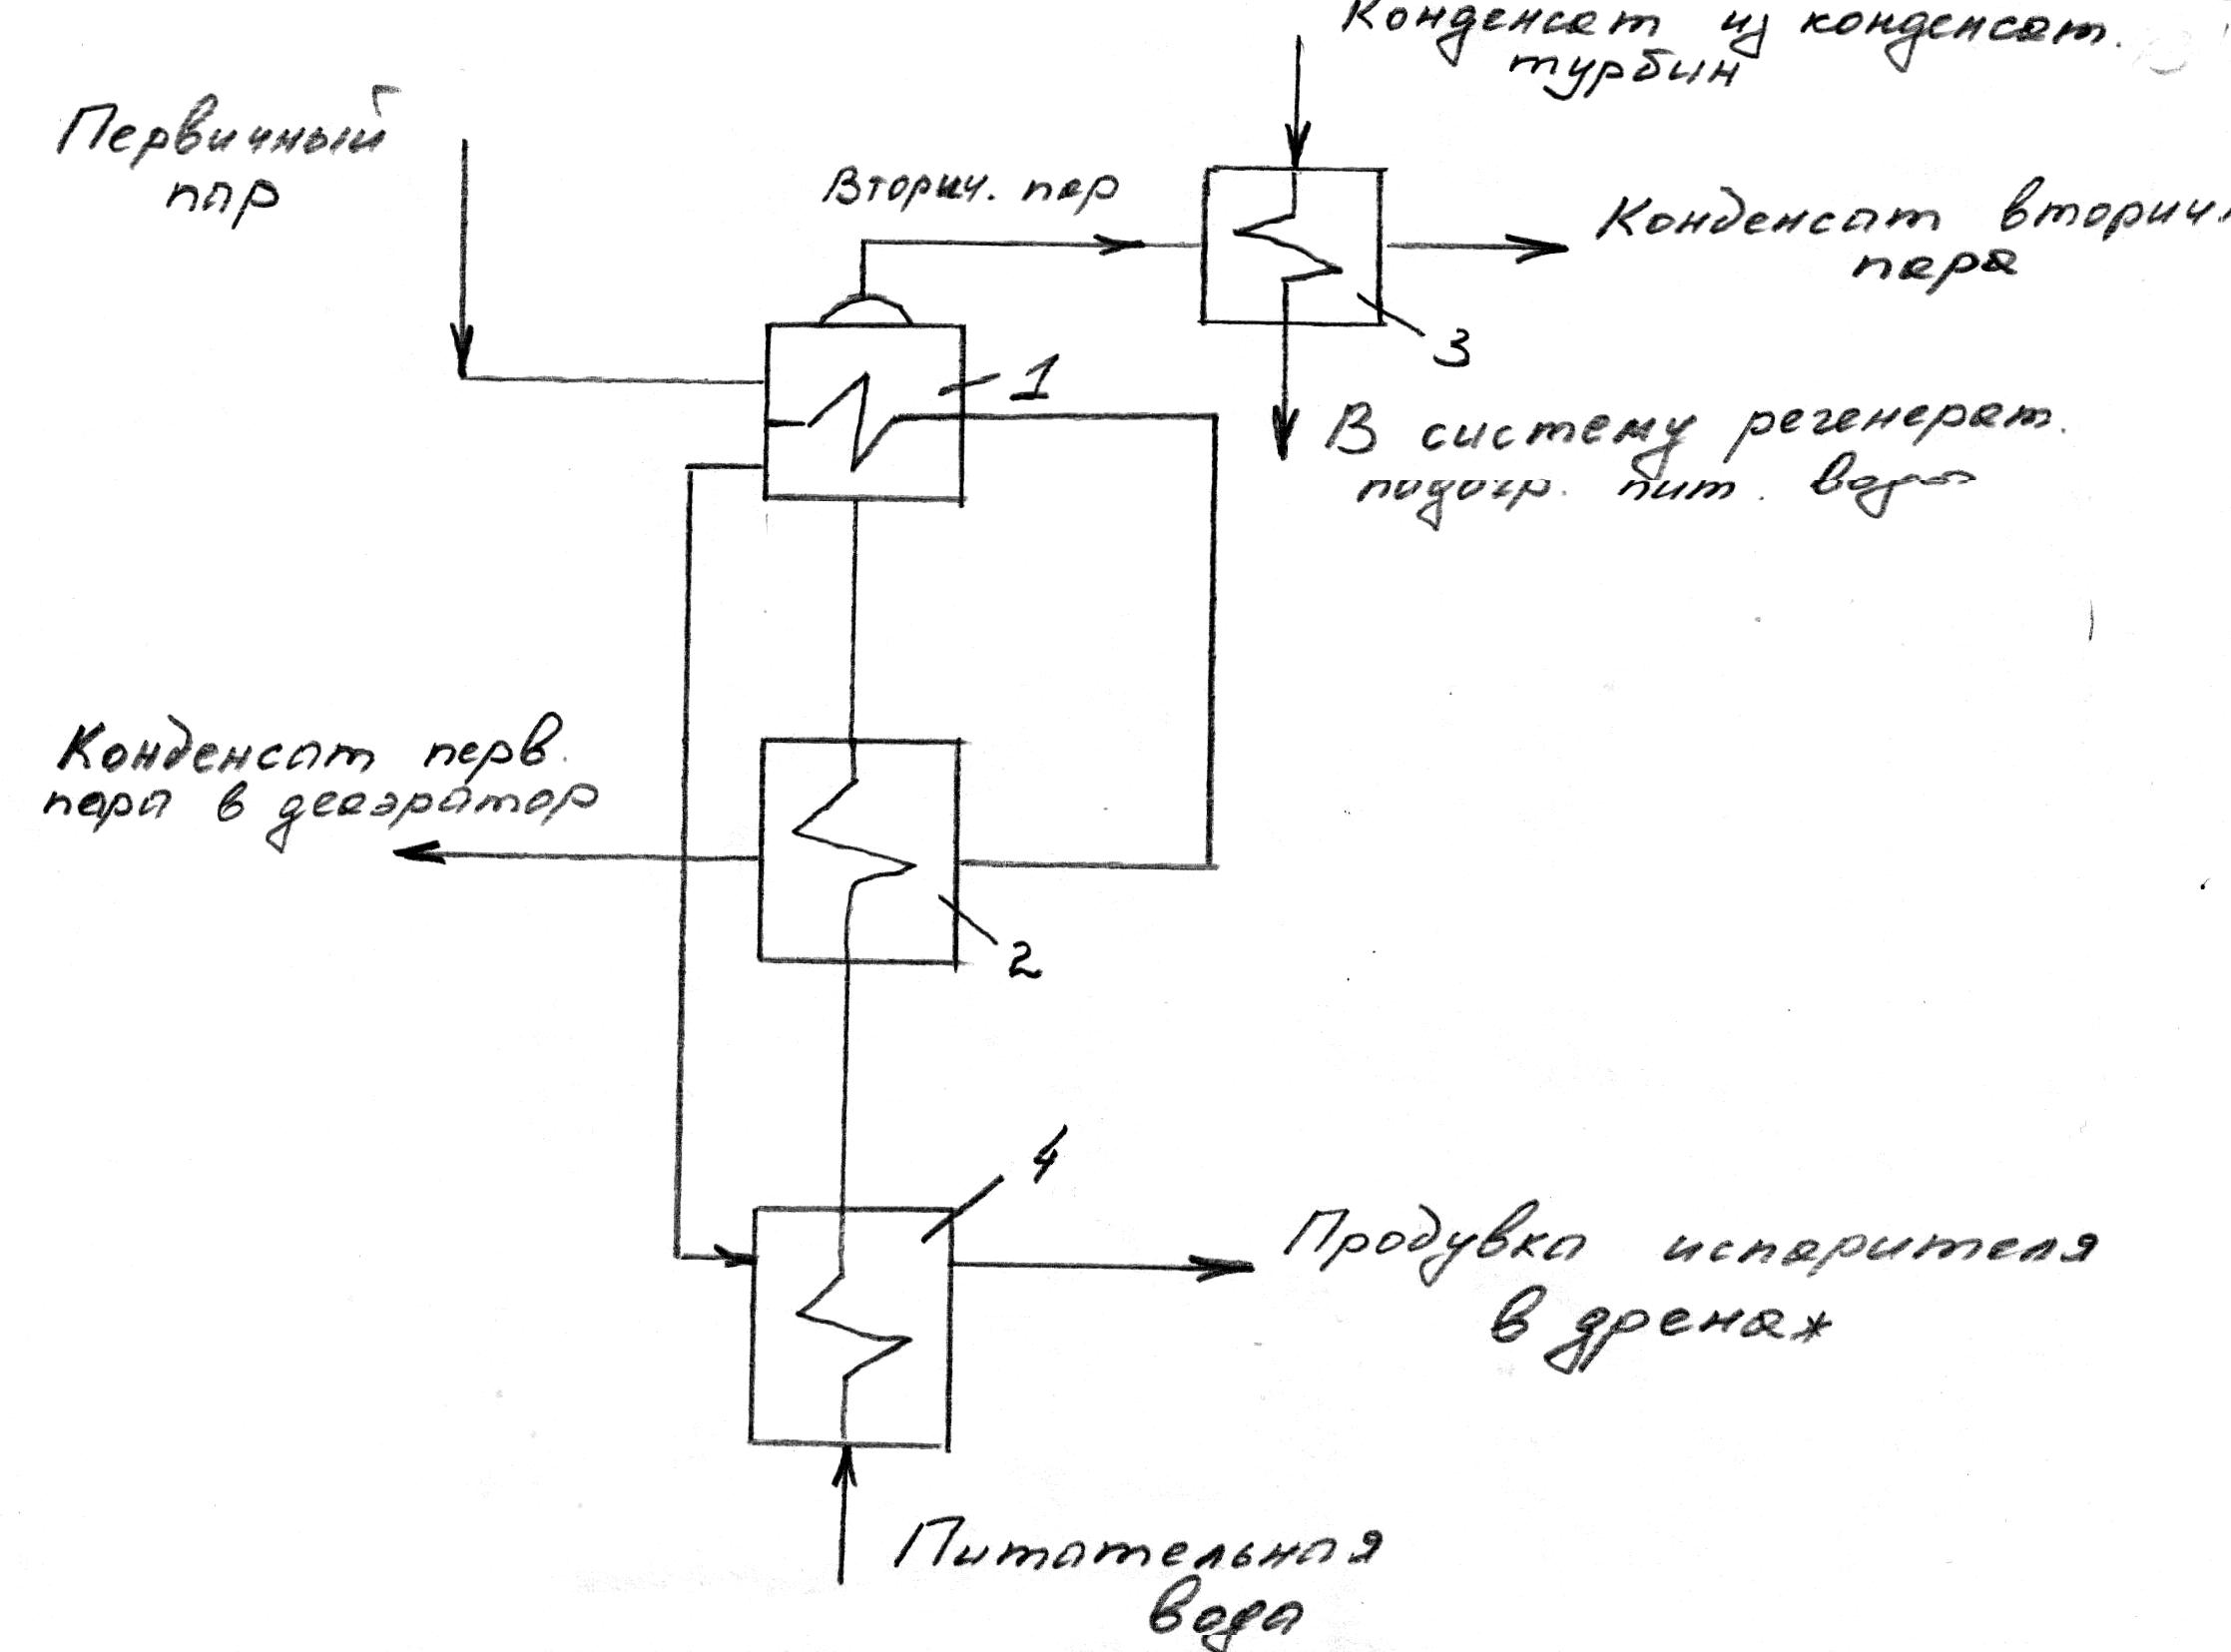 Конденсат из конденсат.
турбин
Первичный
пар
Вторич. пар
Конденсат вторичн
пара
3
1
В систему регенерат.
подогр. пит. воды
Конденсат перв.
пара в деаэратор
2
4
Продувка испарителя
в дренаж
Питательная
вода